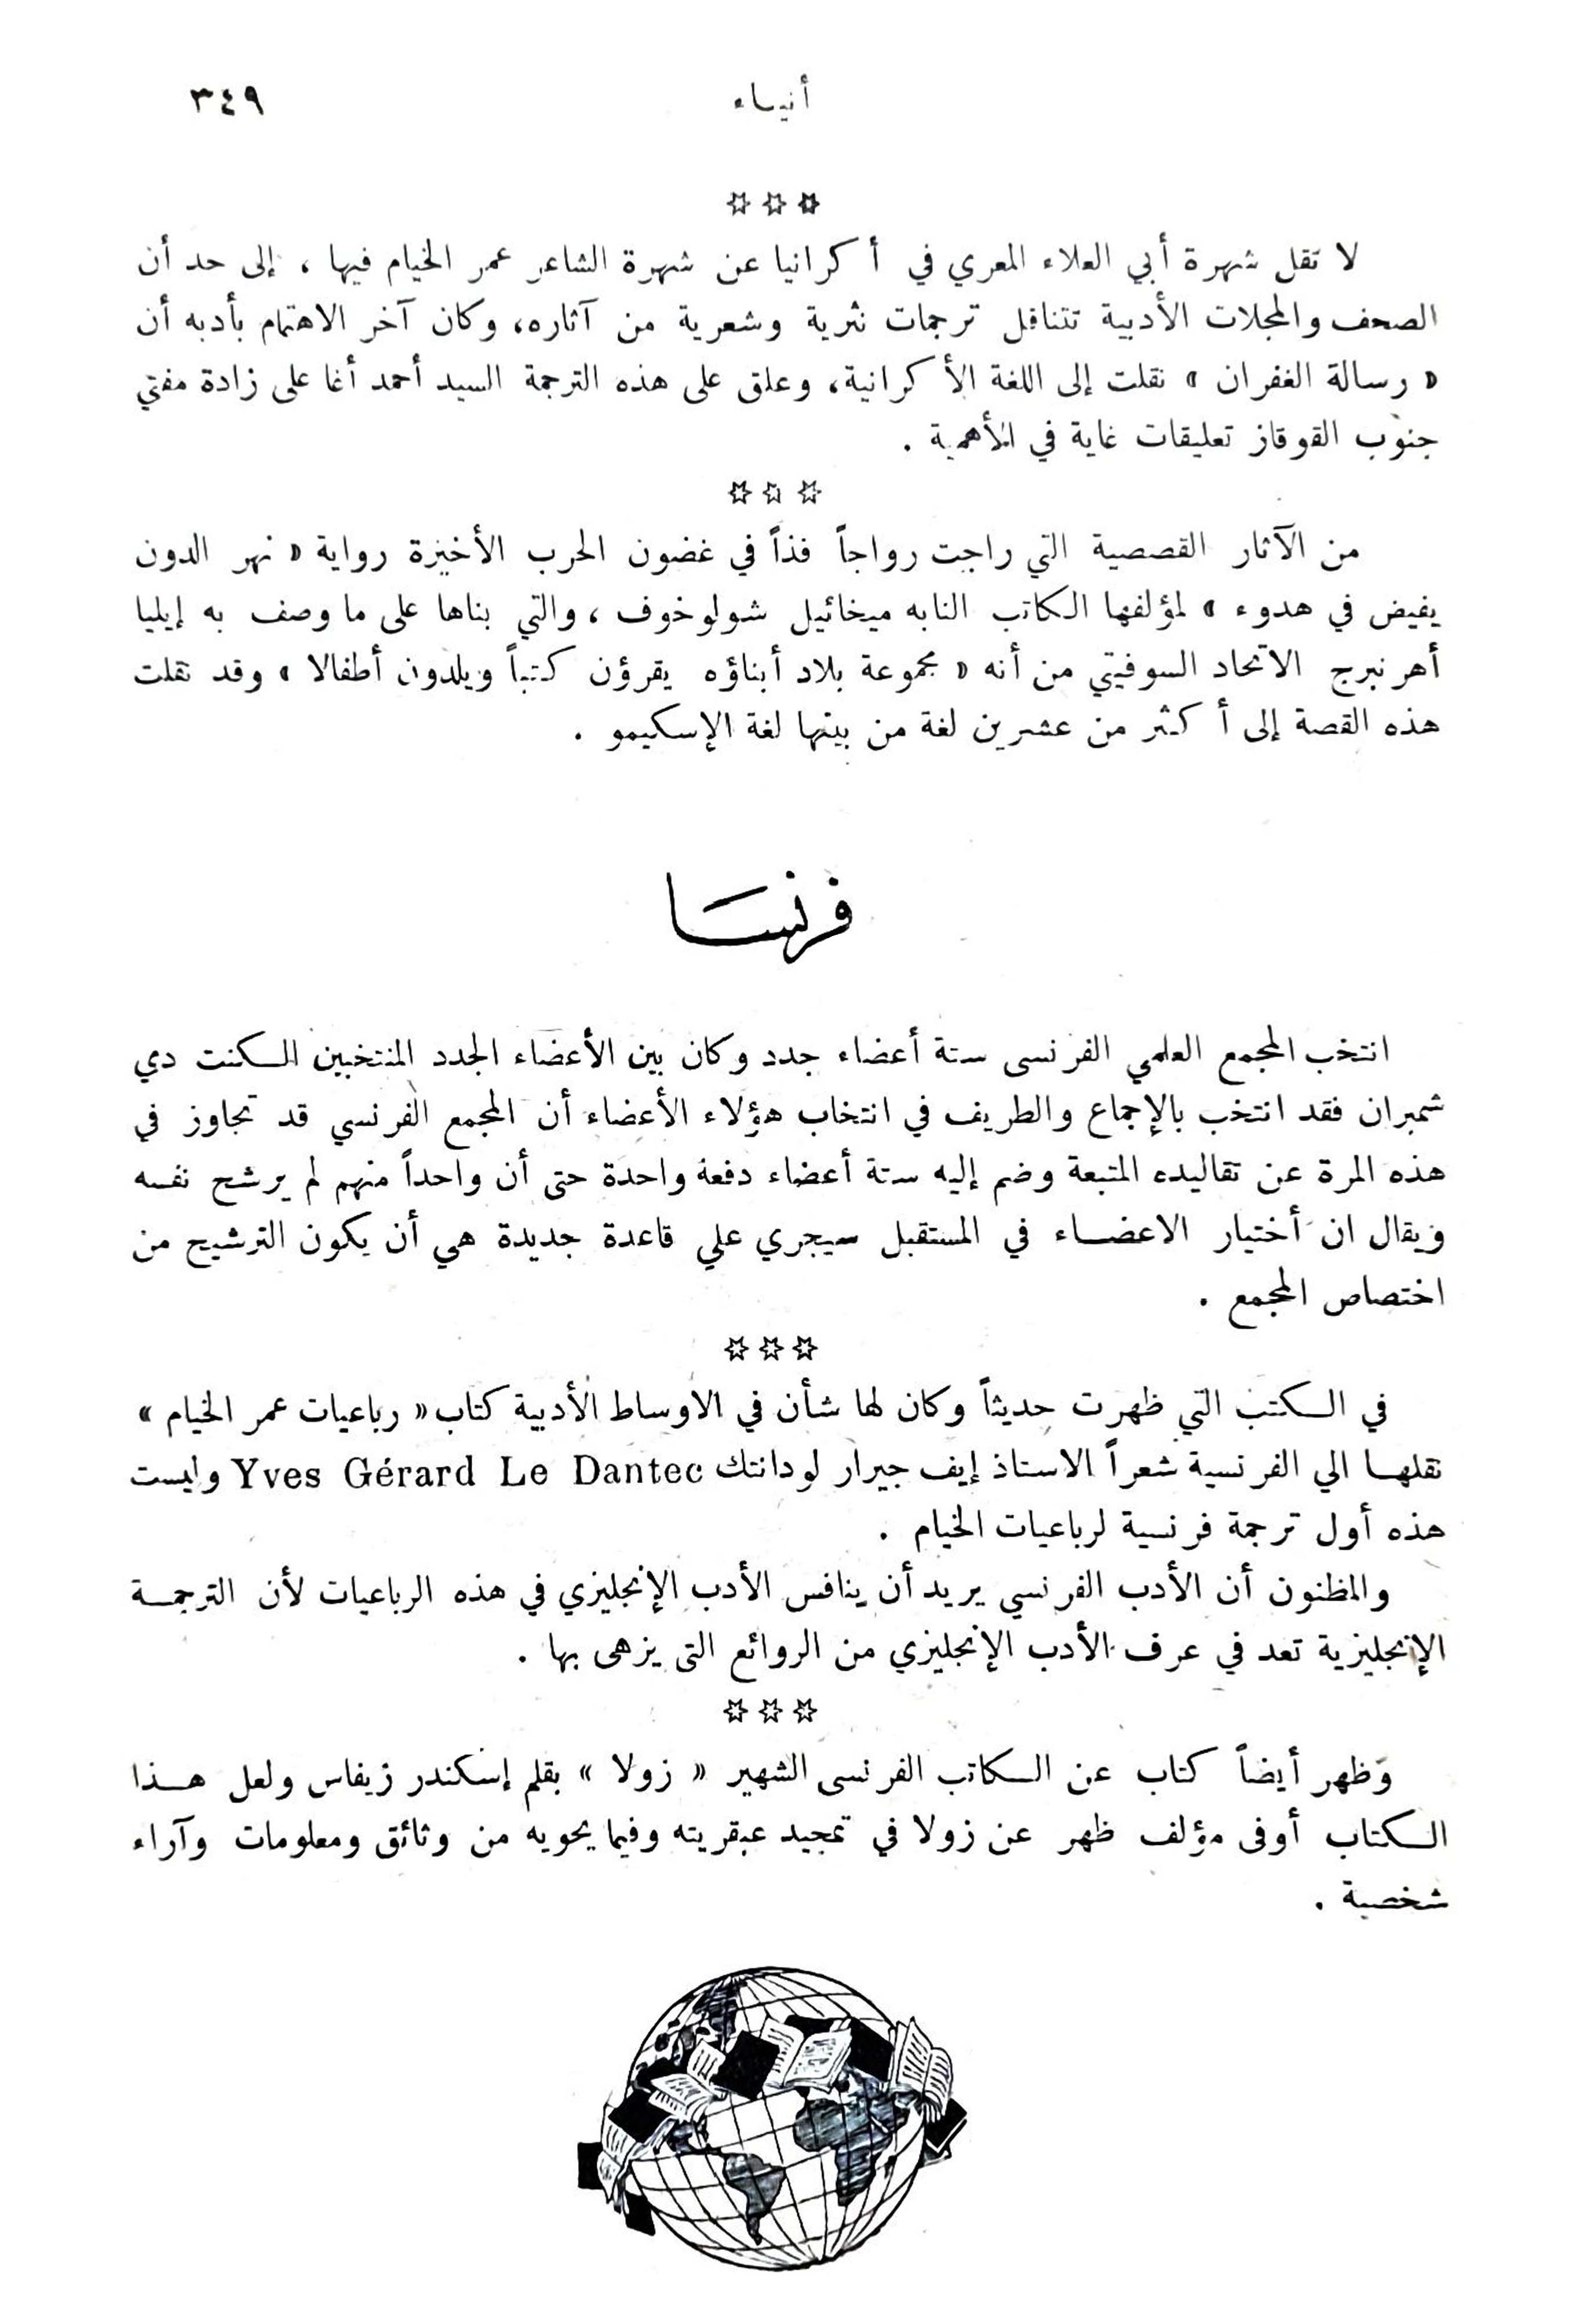 أنباء
٣٤٩
✡ ✡ ✡
لا تقل شهرة أبي العلاء المعري في أكرانيا عن شهرة الشاعر عمر الخيام فيها ، إلى حد أن
الصحف والمجلات الأدبية تتناقل ترجمات نثرية وشعرية من آثاره، وكان آخر الاهتمام بأدبه أن
« رسالة الغفران » نقلت إلى اللغة الأكرانية، وعلق على هذه الترجمة السيد أحمد أغا على زادة مفتي
جنوب القوقاز تعليقات غاية في الأهمية .
✡ ✡ ✡
من الآثار القصصية التي راجت رواجاً فذاً في غضون الحرب الأخيرة رواية « نهر الدون
يفيض في هدوء » لمؤلفها الكاتب النابه ميخائيل شولوخوف ، والتي بناها على ما وصف به إيليا
أهرنبرج الاتحاد السوفيتي من أنه « مجموعة بلاد أبناؤه يقرؤن كتباً ويلدون أطفالا » وقد نقلت
هذه القصة إلى أكثر من عشرين لغة من بينها لغة الإسكيمو .
فرنسا
انتخب المجمع العلمي الفرنسى ستة أعضاء جدد وكان بين الأعضاء الجدد المنتخبين الكنت دي
شمبران فقد انتخب بالإجماع والطريف في انتخاب هؤلاء الأعضاء أن المجمع الفرنسي قد تجاوز في
هذه المرة عن تقاليده المتبعة وضم إليه ستة أعضاء دفعة واحدة حتى أن واحداً منهم لم يرشح نفسه
ويقال ان أختيار الاعضاء في المستقبل سيجري علي قاعدة جديدة هي أن يكون الترشيح من
اختصاص المجمع .
✡ ✡ ✡
في الكتب التي ظهرت حديثاً وكان لها شأن في الاوساط الأدبية كتاب « رباعيات عمر الخيام »
نقلها الي الفرنسية شعراً الاستاذ إيف جيرار لودانتك Yves Gérard Le Dantec وليست
هذه أول ترجمة فرنسية لرباعيات الخيام .
والمظنون أن الأدب الفرنسي يريد أن ينافس الأدب الإنجليزي في هذه الرباعيات لأن الترجمة
الإنجليزية تعد في عرف الأدب الإنجليزي من الروائع التى يزهى بها .
✡ ✡ ✡
وظهر أيضاً كتاب عن الكاتب الفرنسى الشهير « زولا » بقلم إسكندر زيفاس ولعل هذا
الكتاب أوفى مؤلف ظهر عن زولا في تمجيد عبقريته وفيما يحويه من وثائق ومعلومات وآراء
شخصية .